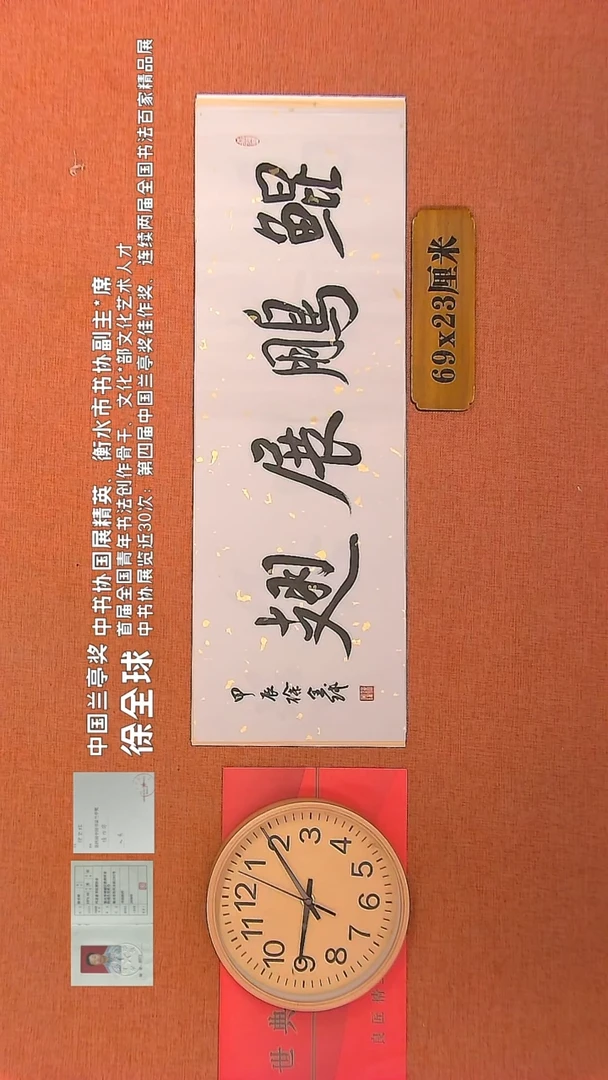 中国兰亭奖 中书协国展精英、衡水市书协副主*席
徐全球
首届全国青年书法创作骨干、文化*部文化艺术人才
中书协展览近30次：第四届中国兰亭奖佳作奖、连续两届全国书法百家精品展
鲲鹏展翅
甲辰徐全球
69x23厘米
12 1 2 3 4 5 6 7 8 9 10 11
世典
良匠精